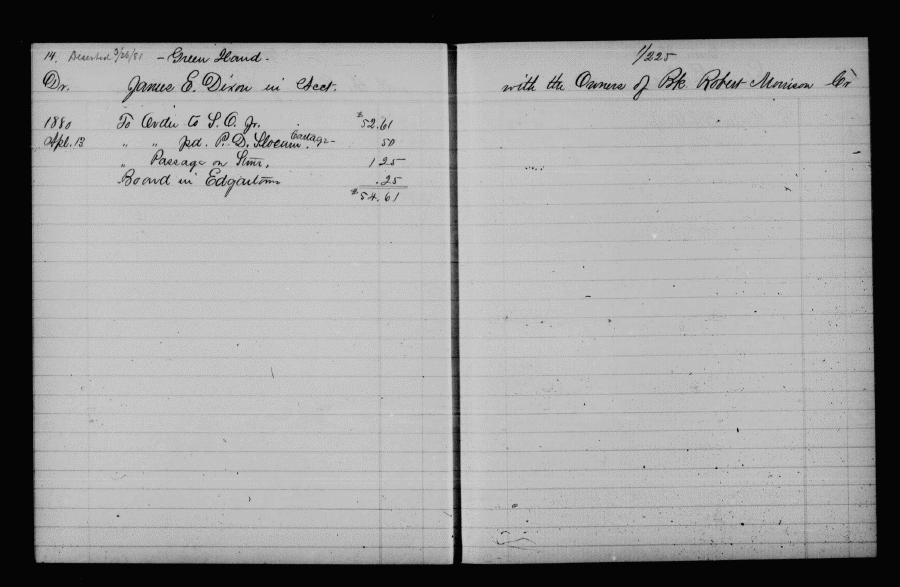 14. Deserted 3/26/81 - Green Hand -
Dr. James E. Dixon in Acct.
1880 To Order to S. O. Jr. $52.61
Apl. 13 " " pd. P. D. Slocum. Cartage - 50
" Passage on Stmr. 1 25
Board in Edgartown .25
$54.61
1/225
with the Owners of Bk. Robert Morrison Cr